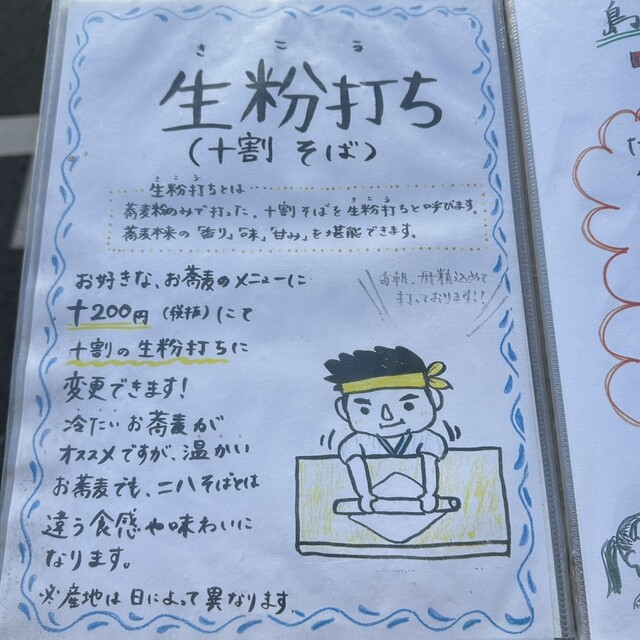 きこう
生粉打ち
(十割 そば)
きこう
生粉打ちとは…
きこう
蕎麦粉のみで打った、十割そばを生粉打ちと呼びます。
蕎麦本来の「香り」「味」「甘み」を堪能できます。
お好きな、お蕎麦のメニューに
+200円(税抜)にて
十割の生粉打ちに
変更できます!
冷たいお蕎麦が
オススメですが、温かい
お蕎麦でも、二八そばとは
違う食感や味わいに
なります。
※産地は日によって異なります
毎朝、丹精込めて
打っております!!
島